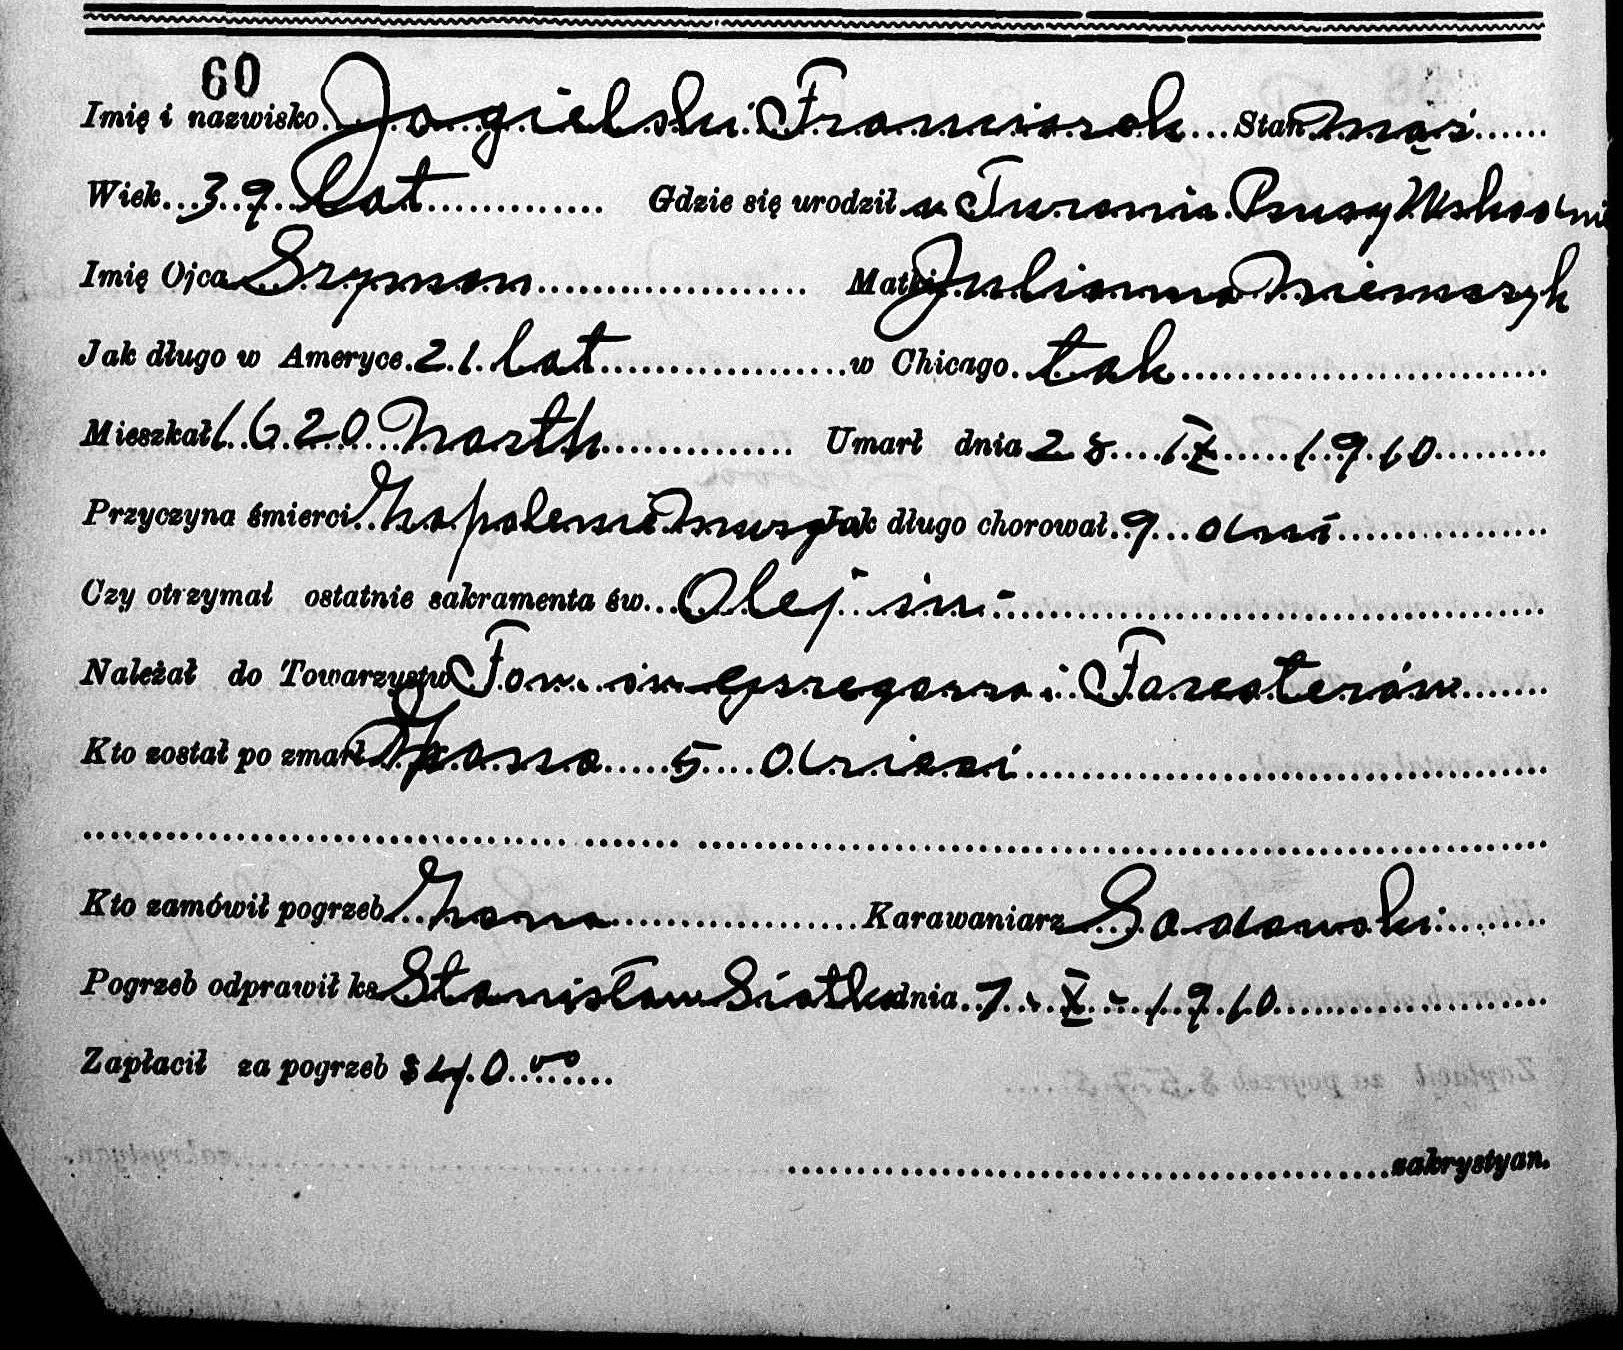 60
Imię i nazwisko Jagielski Franciszek Stan mąż
Wiek 39 lat Gdzie się urodził w Prusy Wshodnie
Imię Ojca Szyman Matki Julianna Niemszyk
Jak długo w Ameryce 21 lat w Chicago tak
Mieszkał 1620 North Umarł dnia 28 IX 1910
Przyczyna śmierci Zapalenie Muzga Jak długo chorował 9 dni
Czy otrzymał ostatnie sakramenta św. Olej św
Należał do Towarzystw Tow. św Grzegorza i Foresterów
Kto został po zmarł Żona 5 dzieci
Kto zamówił pogrzeb Żona Karawaniarz Sadowski
Pogrzeb odprawił ks Stanisław Siatka dnia 1 - X - 1910
Zapłacił za pogrzeb $40.00
zakrystyan.